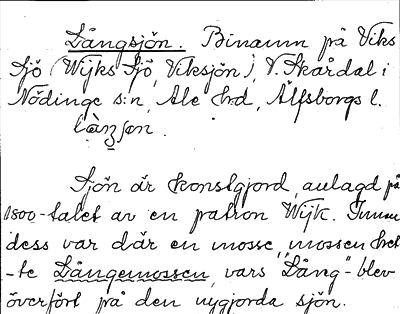 Långsjön. Binamn på Viks
Sjö (Wijks Sjö, Viksjön), V. Skårdal i
Nödinge s:n, Ale hd, Älfsborgs l.
Sjön är konstgjord, anlagd på
1800-talet av en patron Wijk. Innan
dess var där en mosse, mossen het-
-te Långemossen, vars "Lång"- blev
överfört på den nygjorda sjön.